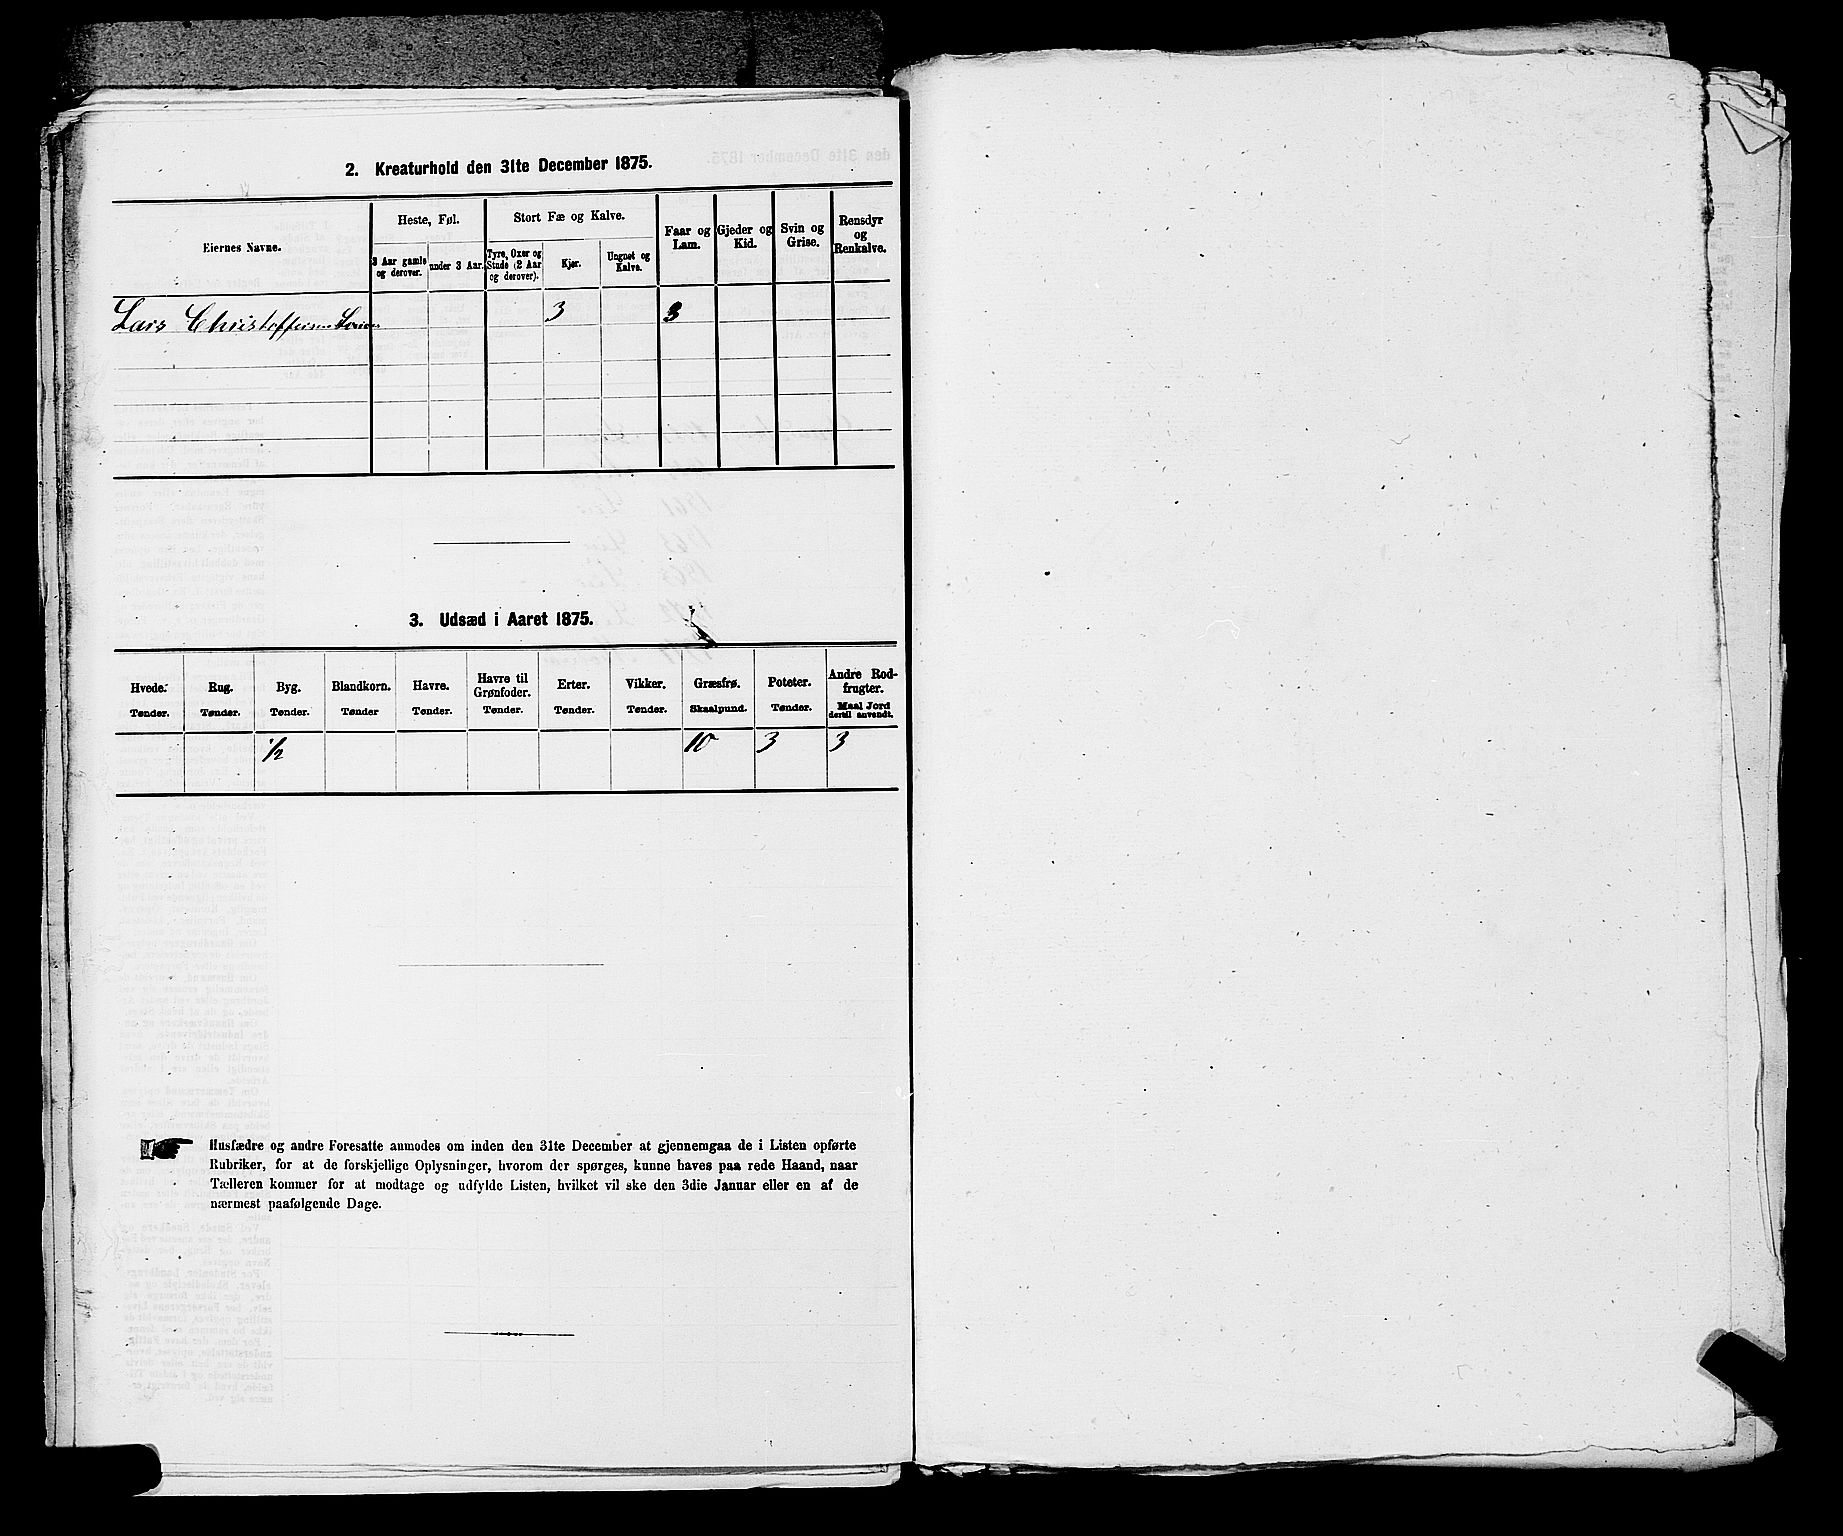 2. Kreaturhold den 31te December 1875.
Eiernes Navne.
Heste, Føl.
Stort Fæ og Kalve.
Faar og Lam.
Gjeder og Kid.
Svin og Grise.
Rensdyr og Renkalve.
3 Aar gamle og derover.
under 3 Aar.
Tyre, Oxer og Stude (2 Aar og derover).
Kjør.
Ungnøt og Kalve.
Lars Christoffersen 3 3
3. Udsæd i Aaret 1875.
Hvede. Rug. Byg. Blandkorn. Havre. Havre til Grønfoder. Erter. Vikker. Græsfrø. Poteter. Andre Rodfrugter.
Tønder. Tønder. Tønder. Tønder Tønder. Tønder. Tønder. Tønder. Skaalpund. Tønder. Maal Jord dertil anvendt.
1/2 10 3 3
Husfædre og andre Foresatte anmodes om inden den 31te December at gjennemgaa de i Listen opførte
Rubriker, for at de forskjellige Oplysninger, hvorom der spørges, kunne haves paa rede Haand, naar
Tælleren kommer for at modtage og udfylde Listen, hvilket vil ske den 3die Januar eller en af de
nærmest paafølgende Dage.